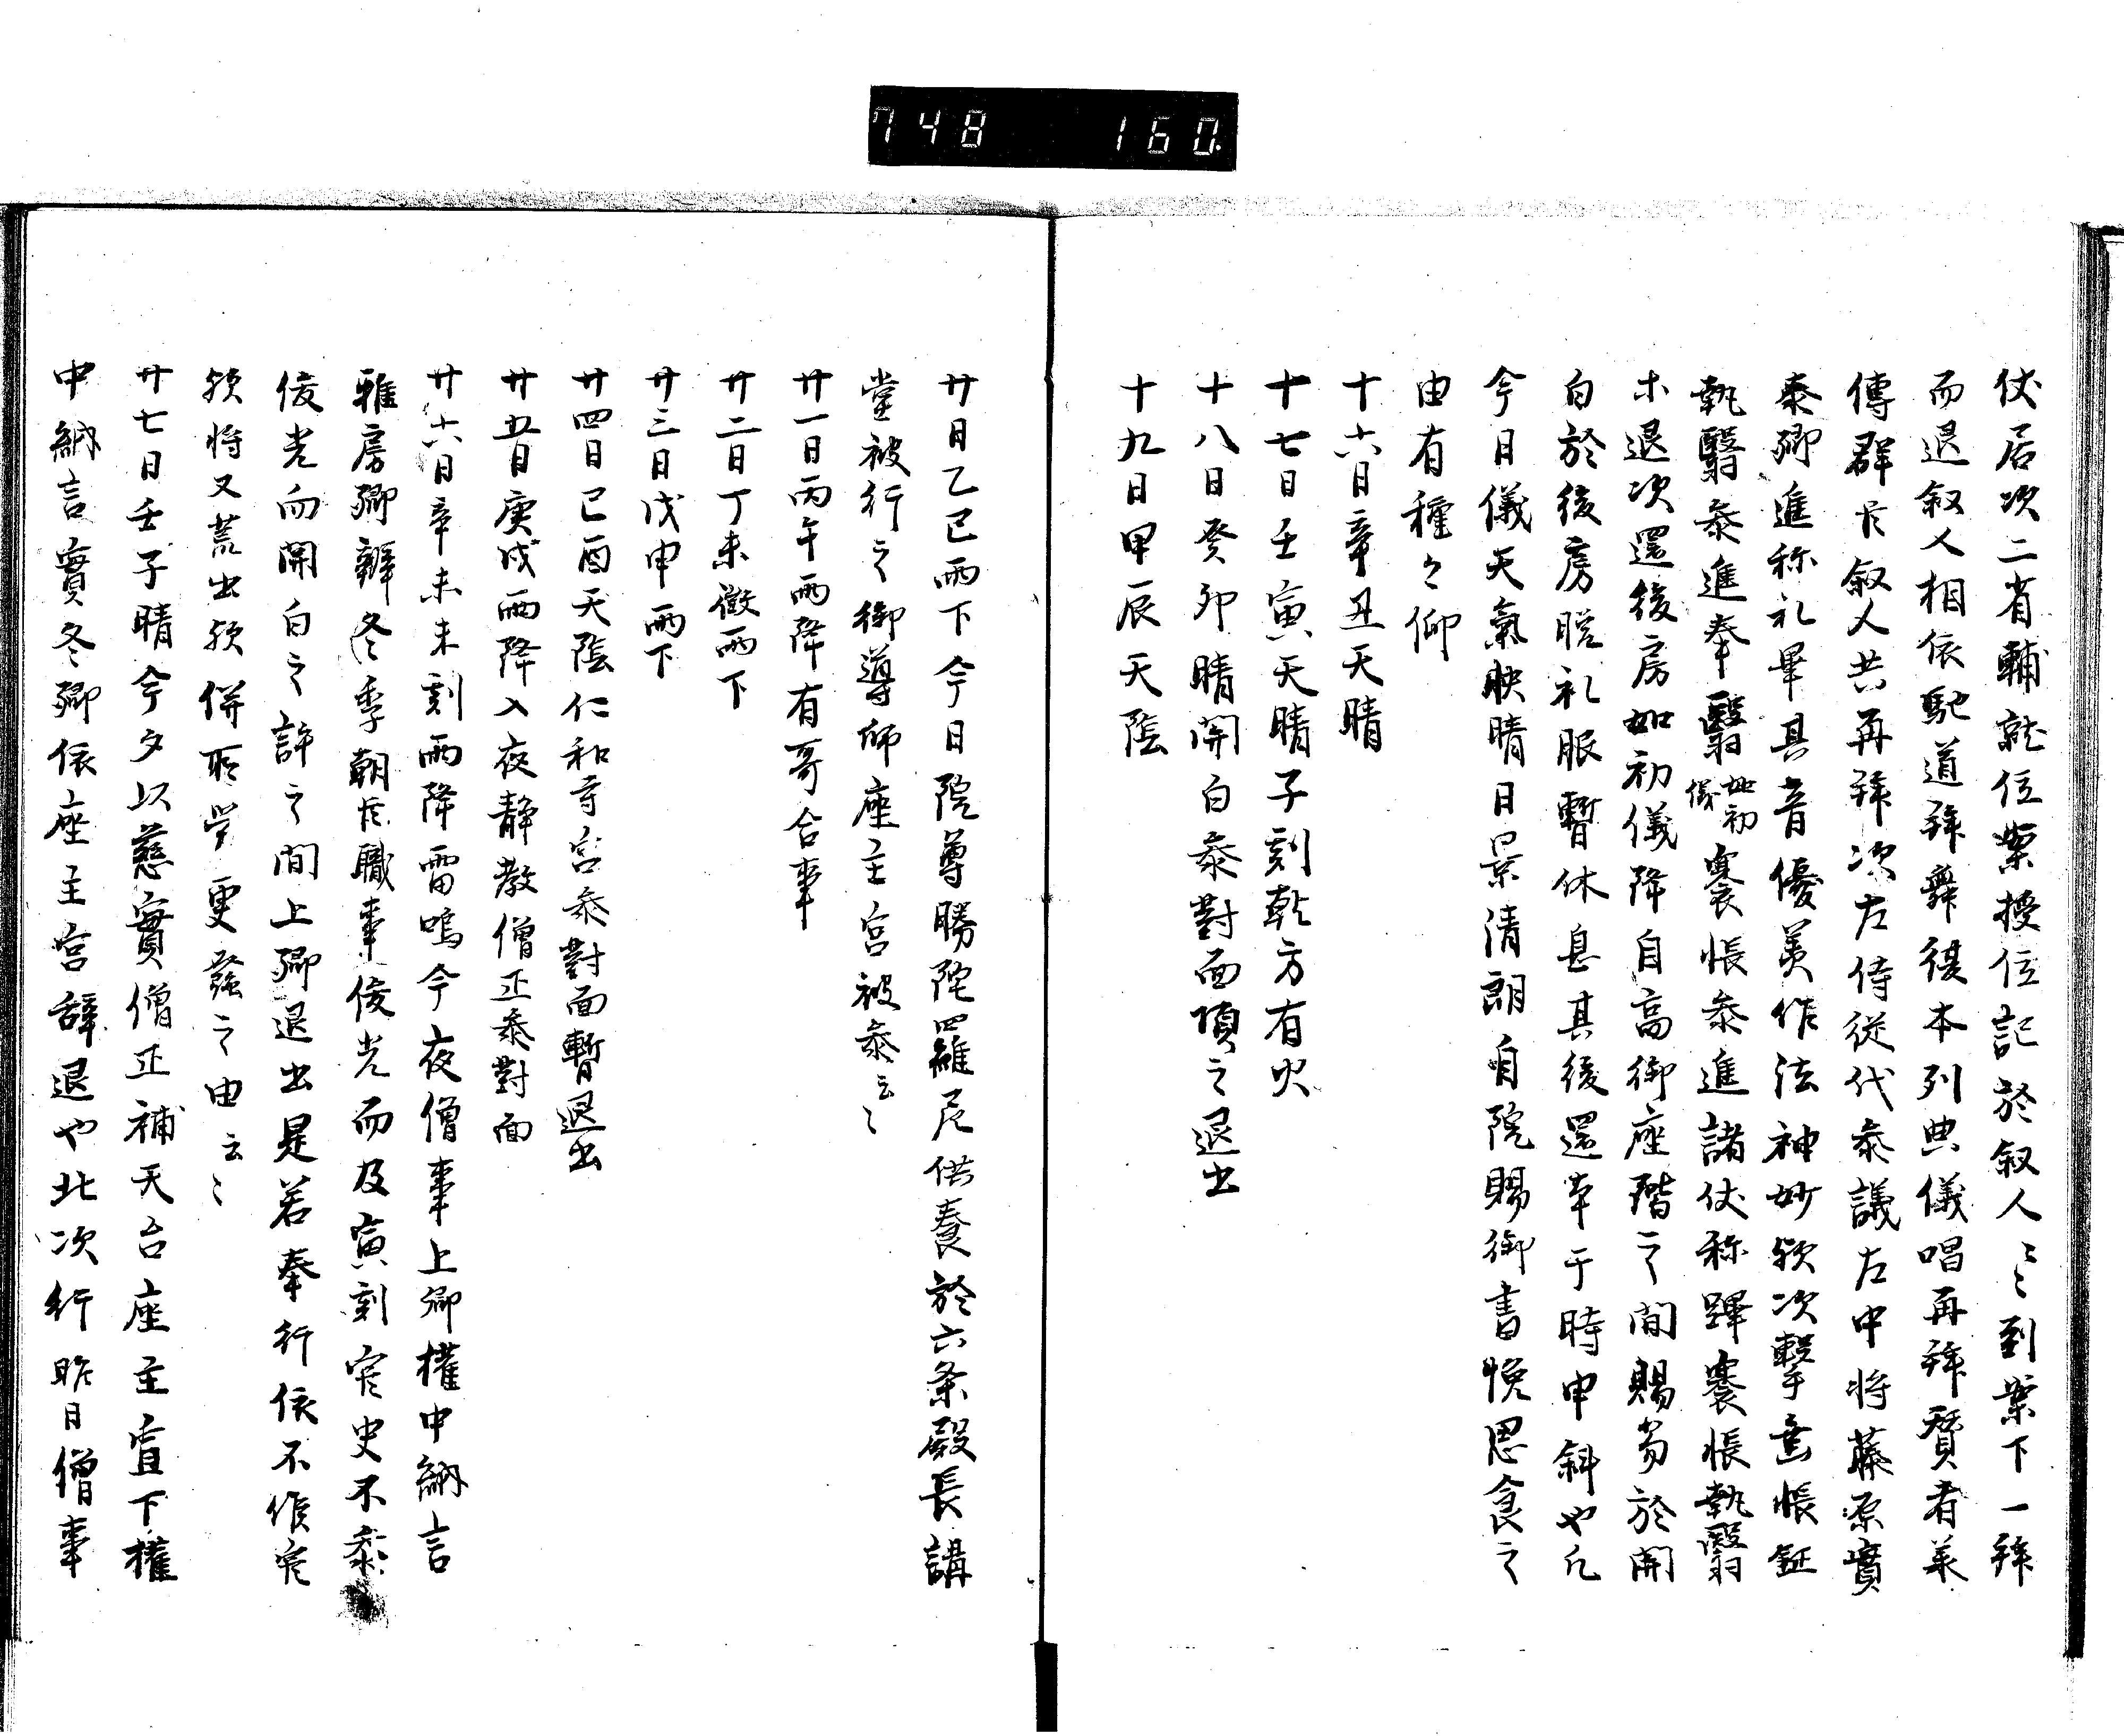 748 160
仗居次二省輔就位案授位記於叙人〻〻到案下一拜
而退叙人相依馳道拜舞復本列典儀唱再拜賛者羕
傳群臣叙人共再拜次左侍従代参議左中将藤原實
泰卿進称礼畢其音優美作法神妙欤次撃垂帳鉦
執翳参進奉翳如初儀褰帳参進諸仗称蹕褰帳執翳
ホ退次還後房如初儀降自高御座階之間賜笏於開
白於後房脱礼服暫休息其後還幸于時申斜也凡
今日儀天氣映晴日景清朗自院賜御書悦思食之
由有種々仰
十六日辛丑天晴
十七日壬寅天晴子刻乾方有火
十八日癸卯晴開白参對面頃之退出
十九日甲辰天陰
廿日乙巳雨下今日院尊勝陀羅尼供養於六条殿長講
堂被行之御導師座主宮被参云〻
廿一日丙午雨降有哥合事
廿二日丁未微雨下
廿三日戊申雨下
廿四日已酉天陰仁和寺宮参對面暫退出
廿五日庚戌雨降入夜静教僧正参對面
廿六日辛未未刻雨降雷鳴今夜僧事上卿權中納言
雅房卿辨冬季朝臣職事俊光而及寅刻官史不参
俊光向開白之許之間上卿退出是若奉行依不催官
欤将又荒出欤併耶学更發之由云〻
廿七日壬子晴今夕以慈實僧正補天台座主宣下權
中納言實冬卿依座主宮辞退也此次行昨日僧事